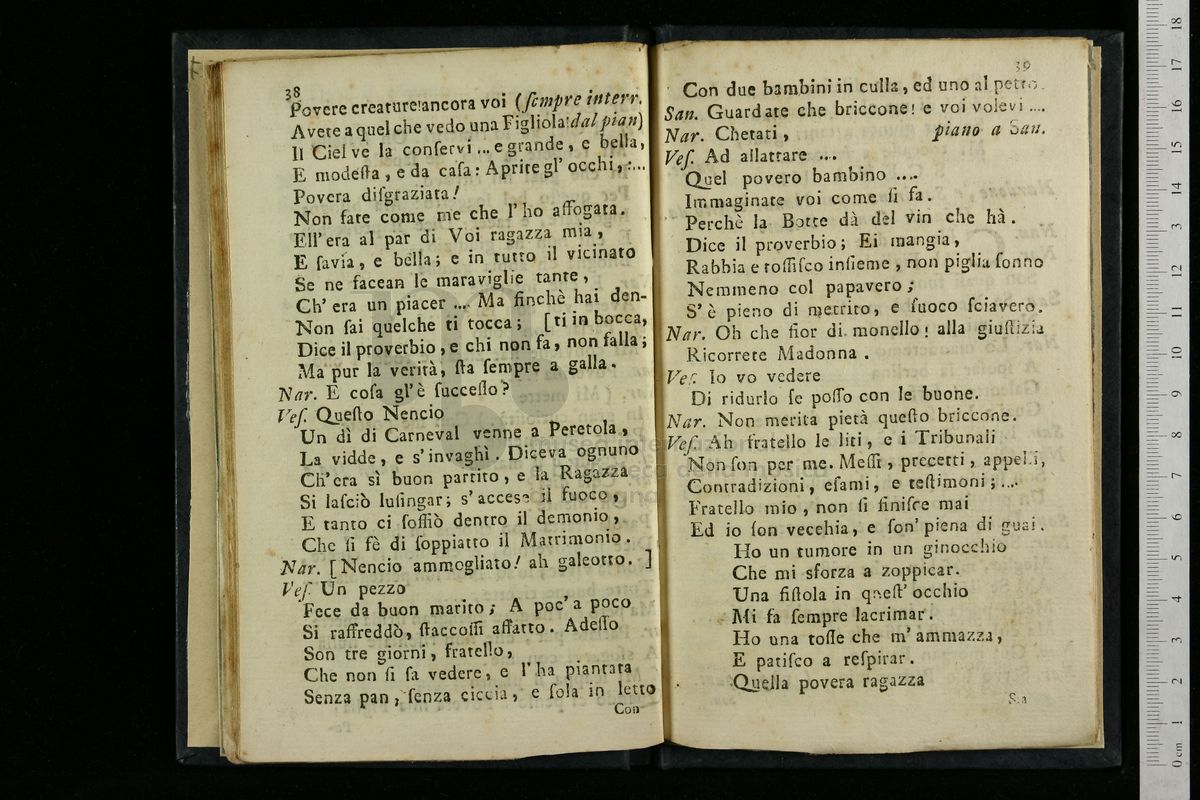 38
Povere creature! ancora voi (ſempre interr.
Avete a quel che vedo una Figliola: dal pian)
Il Ciel ve la conſervi ... e grande, e bella,
E modeſta, e da caſa: Aprite gl' occhi, :...
Povera diſgraziata!
Non fate come me che l' ho affogata.
Ell' era al par di Voi ragazza mia,
E ſavia, e bella; e in tutto il vicinato
Se ne facean le maraviglie tante,
Ch' era un piacer .... Ma finchè hai den-
Non ſai quelche ti tocca; [ti in bocca,
Dice il proverbio, e chi non fa, non falla;
Ma pur la verità, ſta ſempre a galla.
Nar. E coſa gl' è ſucceſſo?
Veſ. Queſto Nencio
Un dì di Carneval venne a Peretola,
La vidde, e s' invaghì. Diceva ognuno
Ch' era sì buon partito, e la Ragazza
Si laſciò luſingar; s' accese il fuoco,
E tanto ci ſoffiò dentro il demonio,
Che ſi fè di ſoppiatto il Matrimonio.
Nar. [Nencio ammogliato! ah galeotto. ]
Veſ. Un pezzo
Fece da buon marito; A poc' a poco
Si raffreddò, ſtaccoſſi affatto. Adeſſo
Son tre giorni, fratello,
Che non ſi fa vedere, e l' ha piantata
Senza pan, ſenza ciccia, e ſola in letto
Con
39
Con due bambini in culla, ed uno al petto.
San. Guardate che briccone! e voi volevi ....
Nar. Chetati, piano a San.
Veſ. Ad allattare ...
Quel povero bambino ....
Immaginate voi come ſi fa.
Perchè la Botte dà del vin che hà.
Dice il proverbio; Ei mangia,
Rabbia e toſſiſco inſieme, non piglia ſonno
Nemmeno col papavero;
S' è pieno di metrito, e fuoco ſciavero.
Nar. Oh che fior di monello! alla giuſtizia
Ricorrete Madonna.
Veſ. Io vo vedere
Di ridurlo ſe poſſo con le buone.
Nar. Non merita pietà queſto briccone.
Veſ. Ah fratello le liti, e i Tribunali
Non ſon per me. Meſſi, precetti, appelli,
Contradizioni, eſami, e teſtimoni; ....
Fratello mio, non ſi finiſce mai
Ed io ſon vecchia, e ſon' piena di guai.
Ho un tumore in un ginocchio
Che mi sforza a zoppicar.
Una fiſtola in queſt' occhio
Mi fa ſempre lacrimar.
Ho una toſſe che m' ammazza,
E patiſco a reſpirar.
Quella povera ragazza
Sta
museo internazionale
biblioteca della musica
di bologna
0 cm 1 2 3 4 5 6 7 8 9 10 11 12 13 14 15 16 17 18